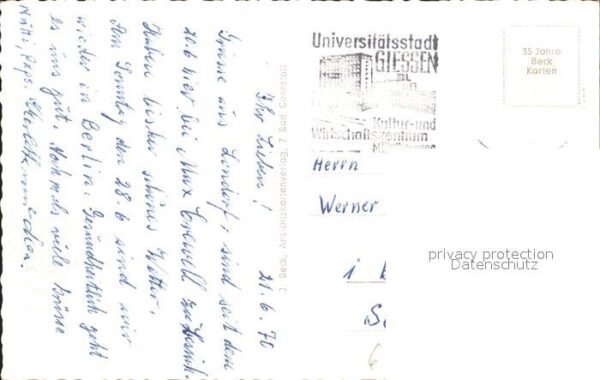 21.6.70
Ihr Lieben!
Grüsse aus Lindorf, sind seit dem
20.6 hier bei Max Crewell zu Besuch.
Haben bisher schönes Wetter.
Am Sonntag den 28.6 sind wir
wieder in Berlin. Gesundheitlich geht
es uns gut. Nochmals viele Grüsse
Mutti, Papa,
J. Beck, Ansichtskartenverlag, 7 Bad Cannstatt
Universitätsstadt
GIESSEN
Kultur-und
Wirtschaftszentrum
35 Jahre
Beck
Karten
Herrn
Werner
privacy protection
Datenschutz